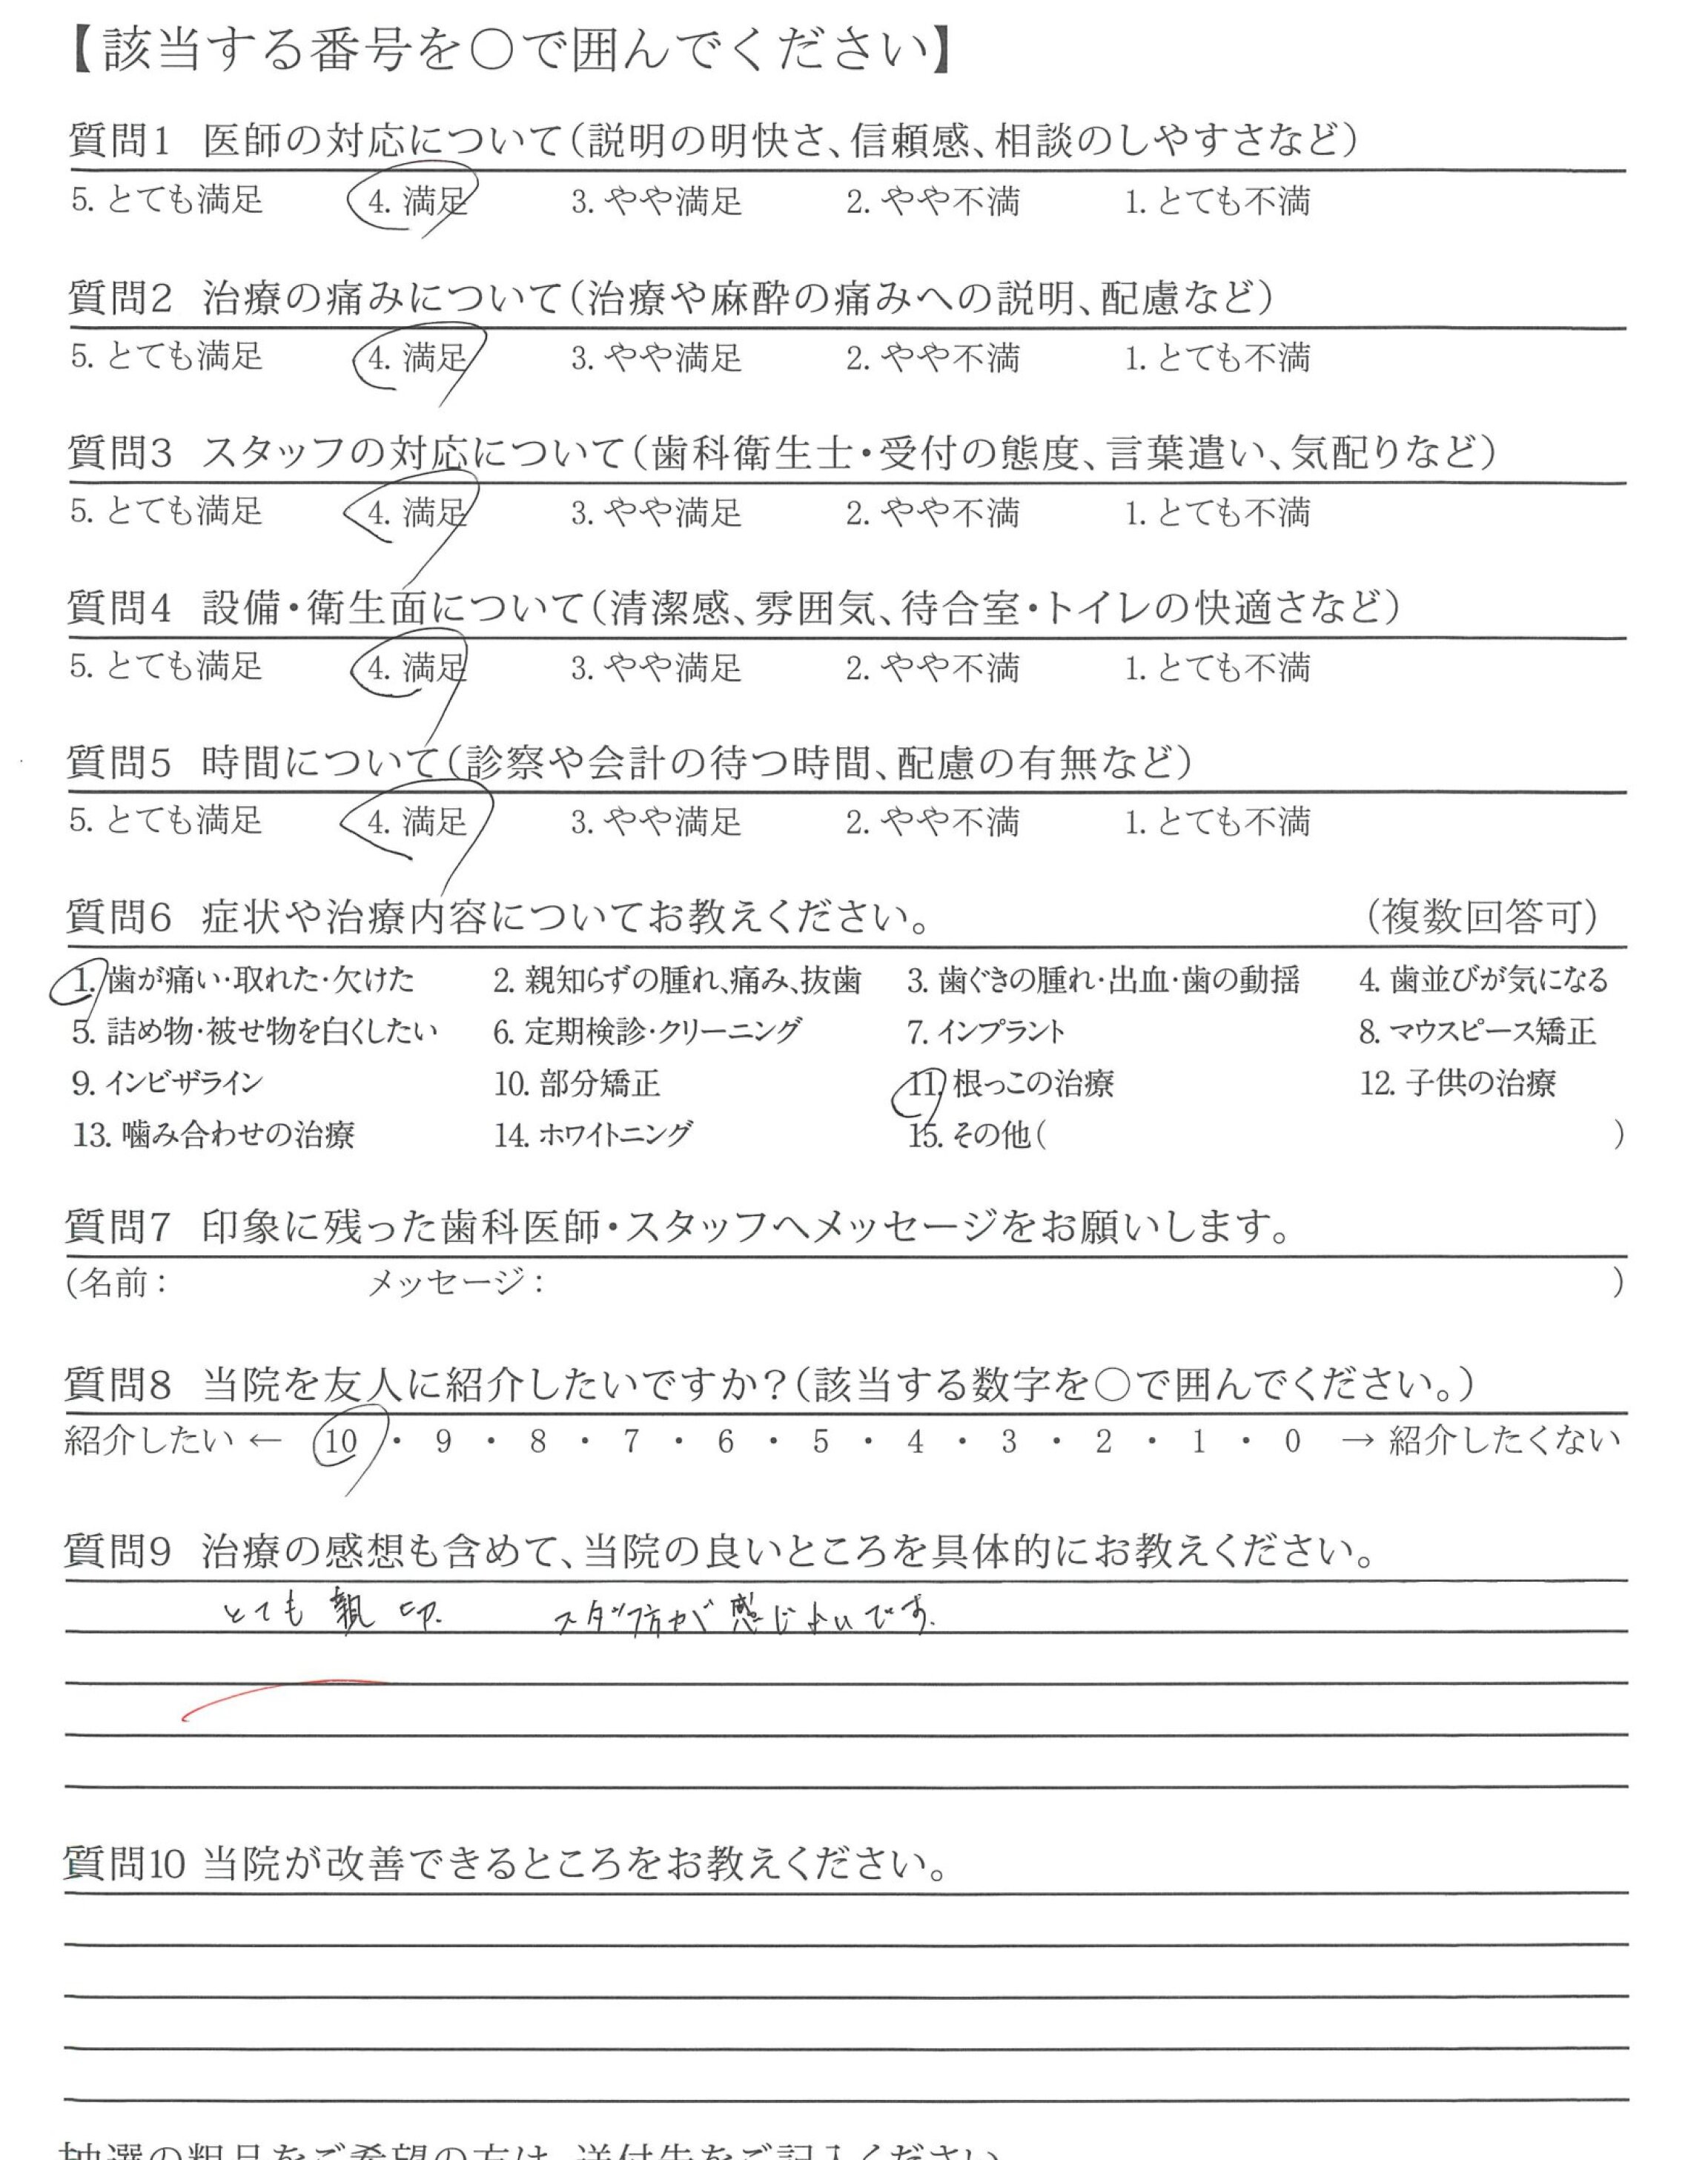 【該当する番号を○で囲んでください】
質問1 医師の対応について(説明の明快さ、信頼感、相談のしやすさなど)
5. とても満足 4. 満足 3. やや満足 2. やや不満 1. とても不満
質問2 治療の痛みについて(治療や麻酔の痛みへの説明、配慮など)
5. とても満足 4. 満足 3. やや満足 2. やや不満 1. とても不満
質問3 スタッフの対応について(歯科衛生士・受付の態度、言葉遣い、気配りなど)
5. とても満足 4. 満足 3. やや満足 2. やや不満 1. とても不満
質問4 設備・衛生面について(清潔感、雰囲気、待合室・トイレの快適さなど)
5. とても満足 4. 満足 3. やや満足 2. やや不満 1. とても不満
質問5 時間について(診察や会計の待つ時間、配慮の有無など)
5. とても満足 4. 満足 3. やや満足 2. やや不満 1. とても不満
質問6 症状や治療内容についてお教えください。 (複数回答可)
1. 歯が痛い・取れた・欠けた 2. 親知らずの腫れ、痛み、抜歯 3. 歯ぐきの腫れ・出血・歯の動揺 4. 歯並びが気になる
5. 詰め物・被せ物を白くしたい 6. 定期検診・クリーニング 7. インプラント 8. マウスピース矯正
9. インビザライン 10. 部分矯正 11. 根っこの治療 12. 子供の治療
13. 噛み合わせの治療 14. ホワイトニング 15. その他( )
質問7 印象に残った歯科医師・スタッフへメッセージをお願いします。
(名前: メッセージ: )
質問8 当院を友人に紹介したいですか?(該当する数字を○で囲んでください。)
紹介したい ← 10 ・ 9 ・ 8 ・ 7 ・ 6 ・ 5 ・ 4 ・ 3 ・ 2 ・ 1 ・ 0 → 紹介したくない
質問9 治療の感想も含めて、当院の良いところを具体的にお教えください。
とても 親 スタッフ方が 感じよいです.
質問10 当院が改善できるところをお教えください。
抽選の粗品をご希望の方は、送付先をご記入ください。